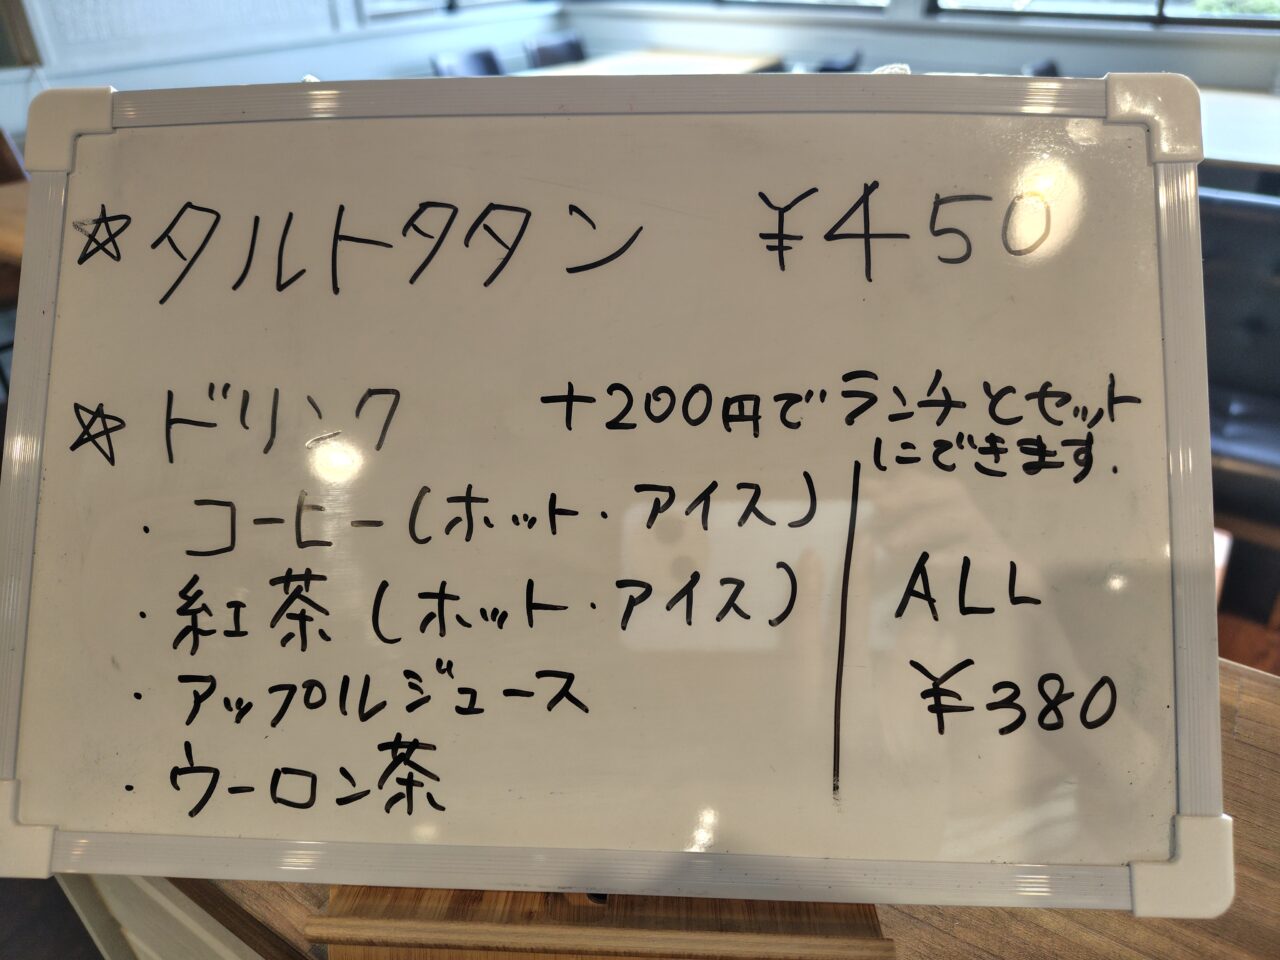 ☆タルトタタン ¥450
☆ドリンク +200円でランチとセット
にできます.
・コーヒー(ホット・アイス)
・紅茶(ホット・アイス)
ALL
・アップルジュース
¥380
・ウーロン茶